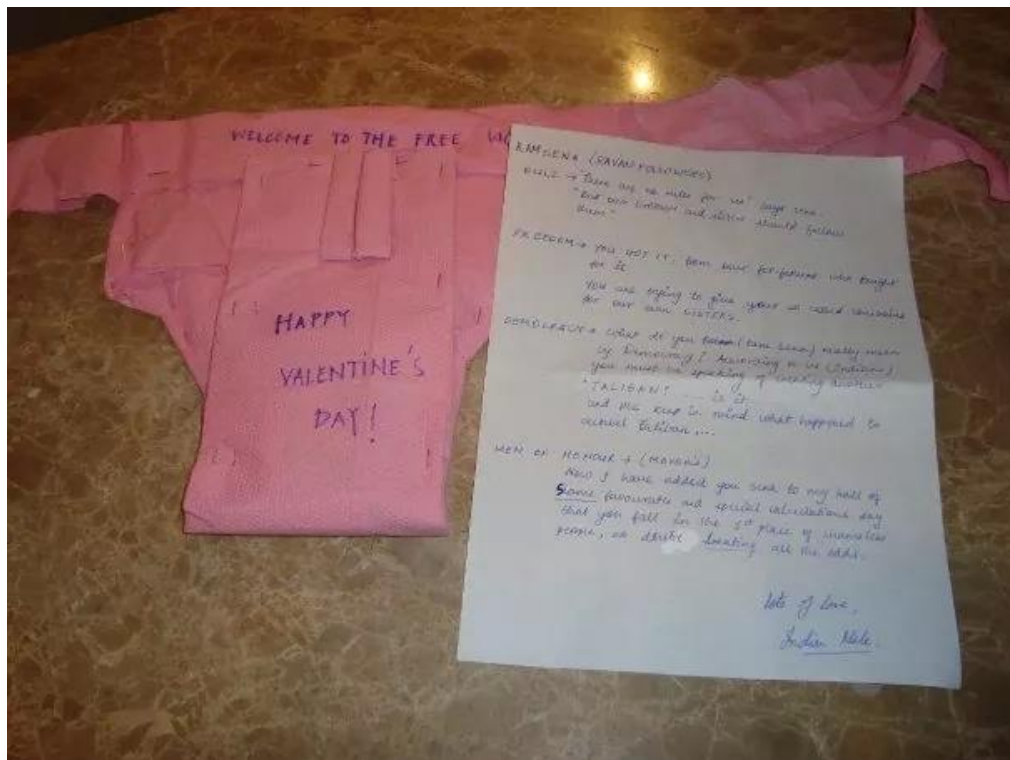 WELCOME TO THE FREE WO
HAPPY
VALENTINE'S
DAY!
RAMSENA (RAVAN FOLLOWERS)
RULZ → "There are no rules for us" says sena.
"But our brothers and sisters should follow
them"
FREEDOM → YOU GOT IT, from our fore-fathers who fought
for it
You are trying to give your so called
for our own SISTERS.
DEMOCRACY → What do you (Ram Sena) really mean
by Democracy? According to us (Indians)
you must be speaking of creating another
"TALIBAN" .... is it
and pls keep in mind what happened to
actual Taliban....
MEN OF HONOUR → (MORONS)
Now I have added you sena to my hall of
Shame favourites and special calculations say
that you fall in the 1st place of shameless
people, no doubt breaking all the odds.
Lots of Love,
Indian Male.